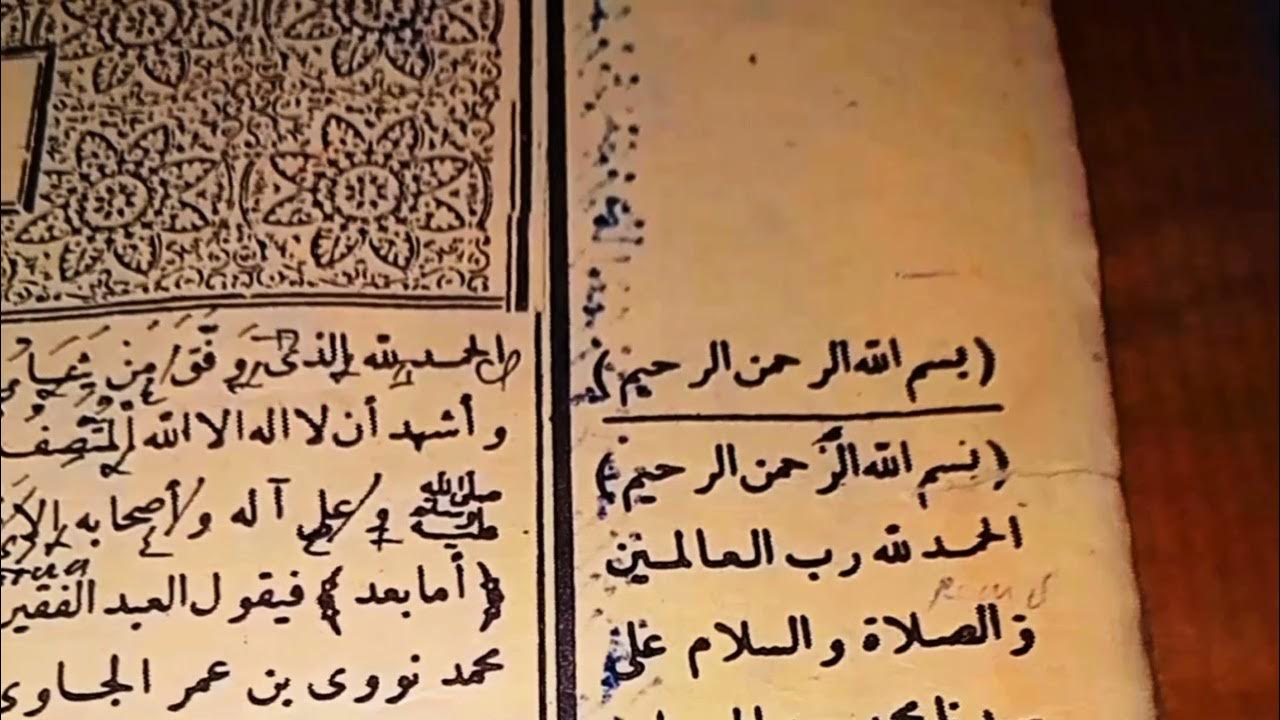 (بسم الله الرحمن الرحيم)
(بسم الله الرَّحمن الرحيم)
الحمد لله رب العالمين
والصلاة والسلام على
الحمد لله الذى وفق من
وأشهد أن لا اله الا الله المتصف
صلى الله عليه وسلم وعلى آله وأصحابه
﴿أما بعد﴾ فيقول العبد الفقير
محمد نووى بن عمر الجاوى